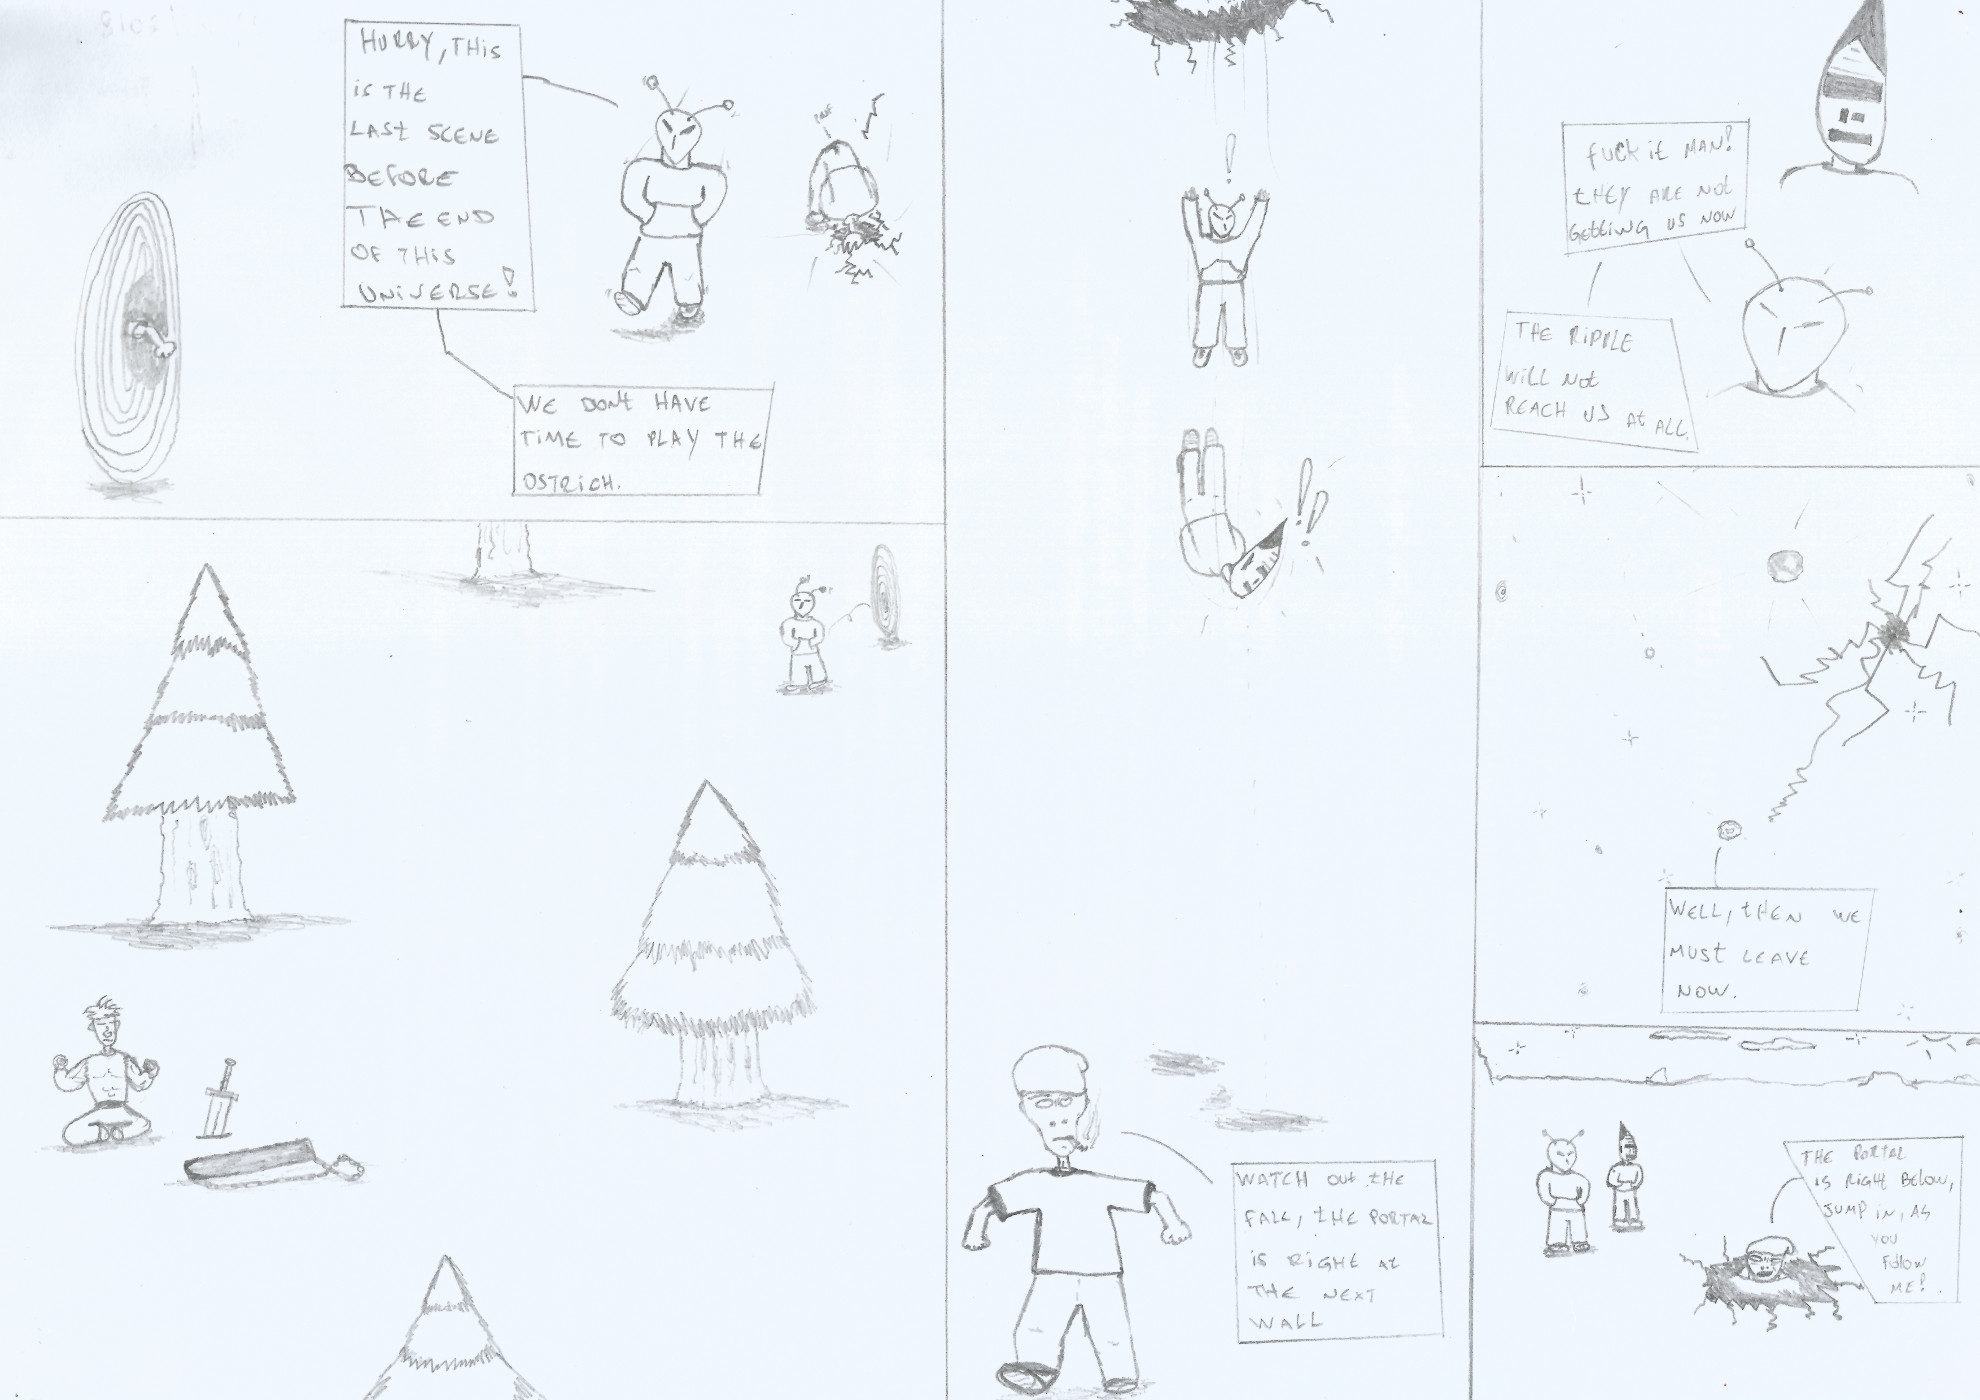 HURRY, THIS
IS THE
LAST SCENE
BEFORE
THE END
OF THIS
UNIVERSE!
WE DONT HAVE
TIME TO PLAY THE
OSTRICH.
!
!!
WATCH OUT THE
FALL, THE PORTAL
IS RIGHT AT
THE NEXT
WALL
FUCK IT MAN!
THEY ARE NOT
GETTING US NOW
THE RIPPLE
WILL NOT
REACH US AT ALL.
WELL, THEN WE
MUST LEAVE
NOW.
THE PORTAL
IS RIGHT BELOW,
JUMP IN, AS
YOU
FOLLOW
ME!